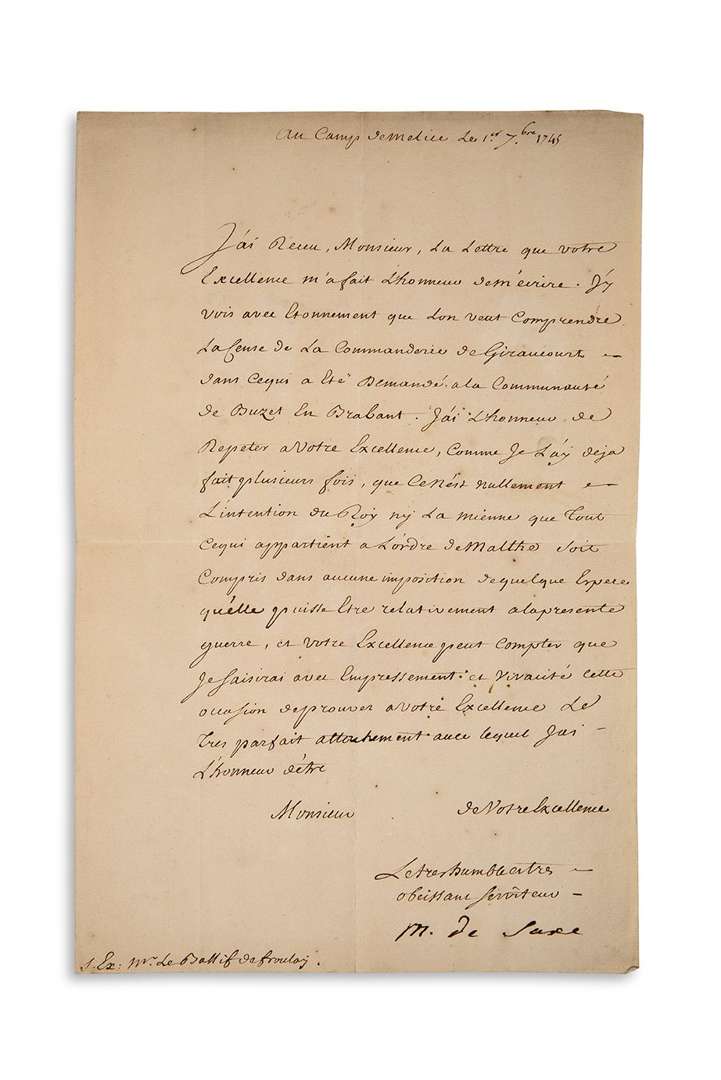 Au Camp demelice Le 1.er 7.bre 1745
J'ai Receu, Monsieur, La Lettre que votre
Excellence m'afait L'honneur dem'écrire. J'y
vois avec Etonnement que Lon veut Comprendre
La Cense de La Commanderie de Giraucourt
dans Cequi a Eté Demandé ala Communauté
de Buzet En Brabant. J'ai L'honneur de
Repeter a Votre Excellence, Comme Je L'ay deja
fait plusieurs fois, que Cenést nullement
L'intention du Roy ny La mienne que Tout
Cequi appartient a L'ordre deMalthe soit
Compris dans aucune imposition dequelque Espece
qu'élle puisse Etre relativement alapresente
guerre, et Votre Excellence peut Compter que
Je saisirai avec Empressement et Vivacité Cette
occasion deprouver a Votre Excellence Le
Tres parfait attachement avec lequel J'ai
L'honneur d'étre
Monsieur deVotre Excellence
Letres humble et tres
obeissant serviteur
M. de Saxe
S. Ex: Mr. Le Baillif de froulay.